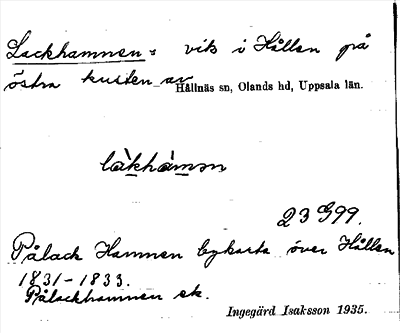 Lackhammen = vik i Hållen på
östra kusten av
Hållnäs sn, Olands hd, Uppsala län.
làkhámən
23 G99.
Pålack Hammen bykarta över Hållen
1831-1833.
Pålackhammen ek.
Ingegärd Isaksson 1935.